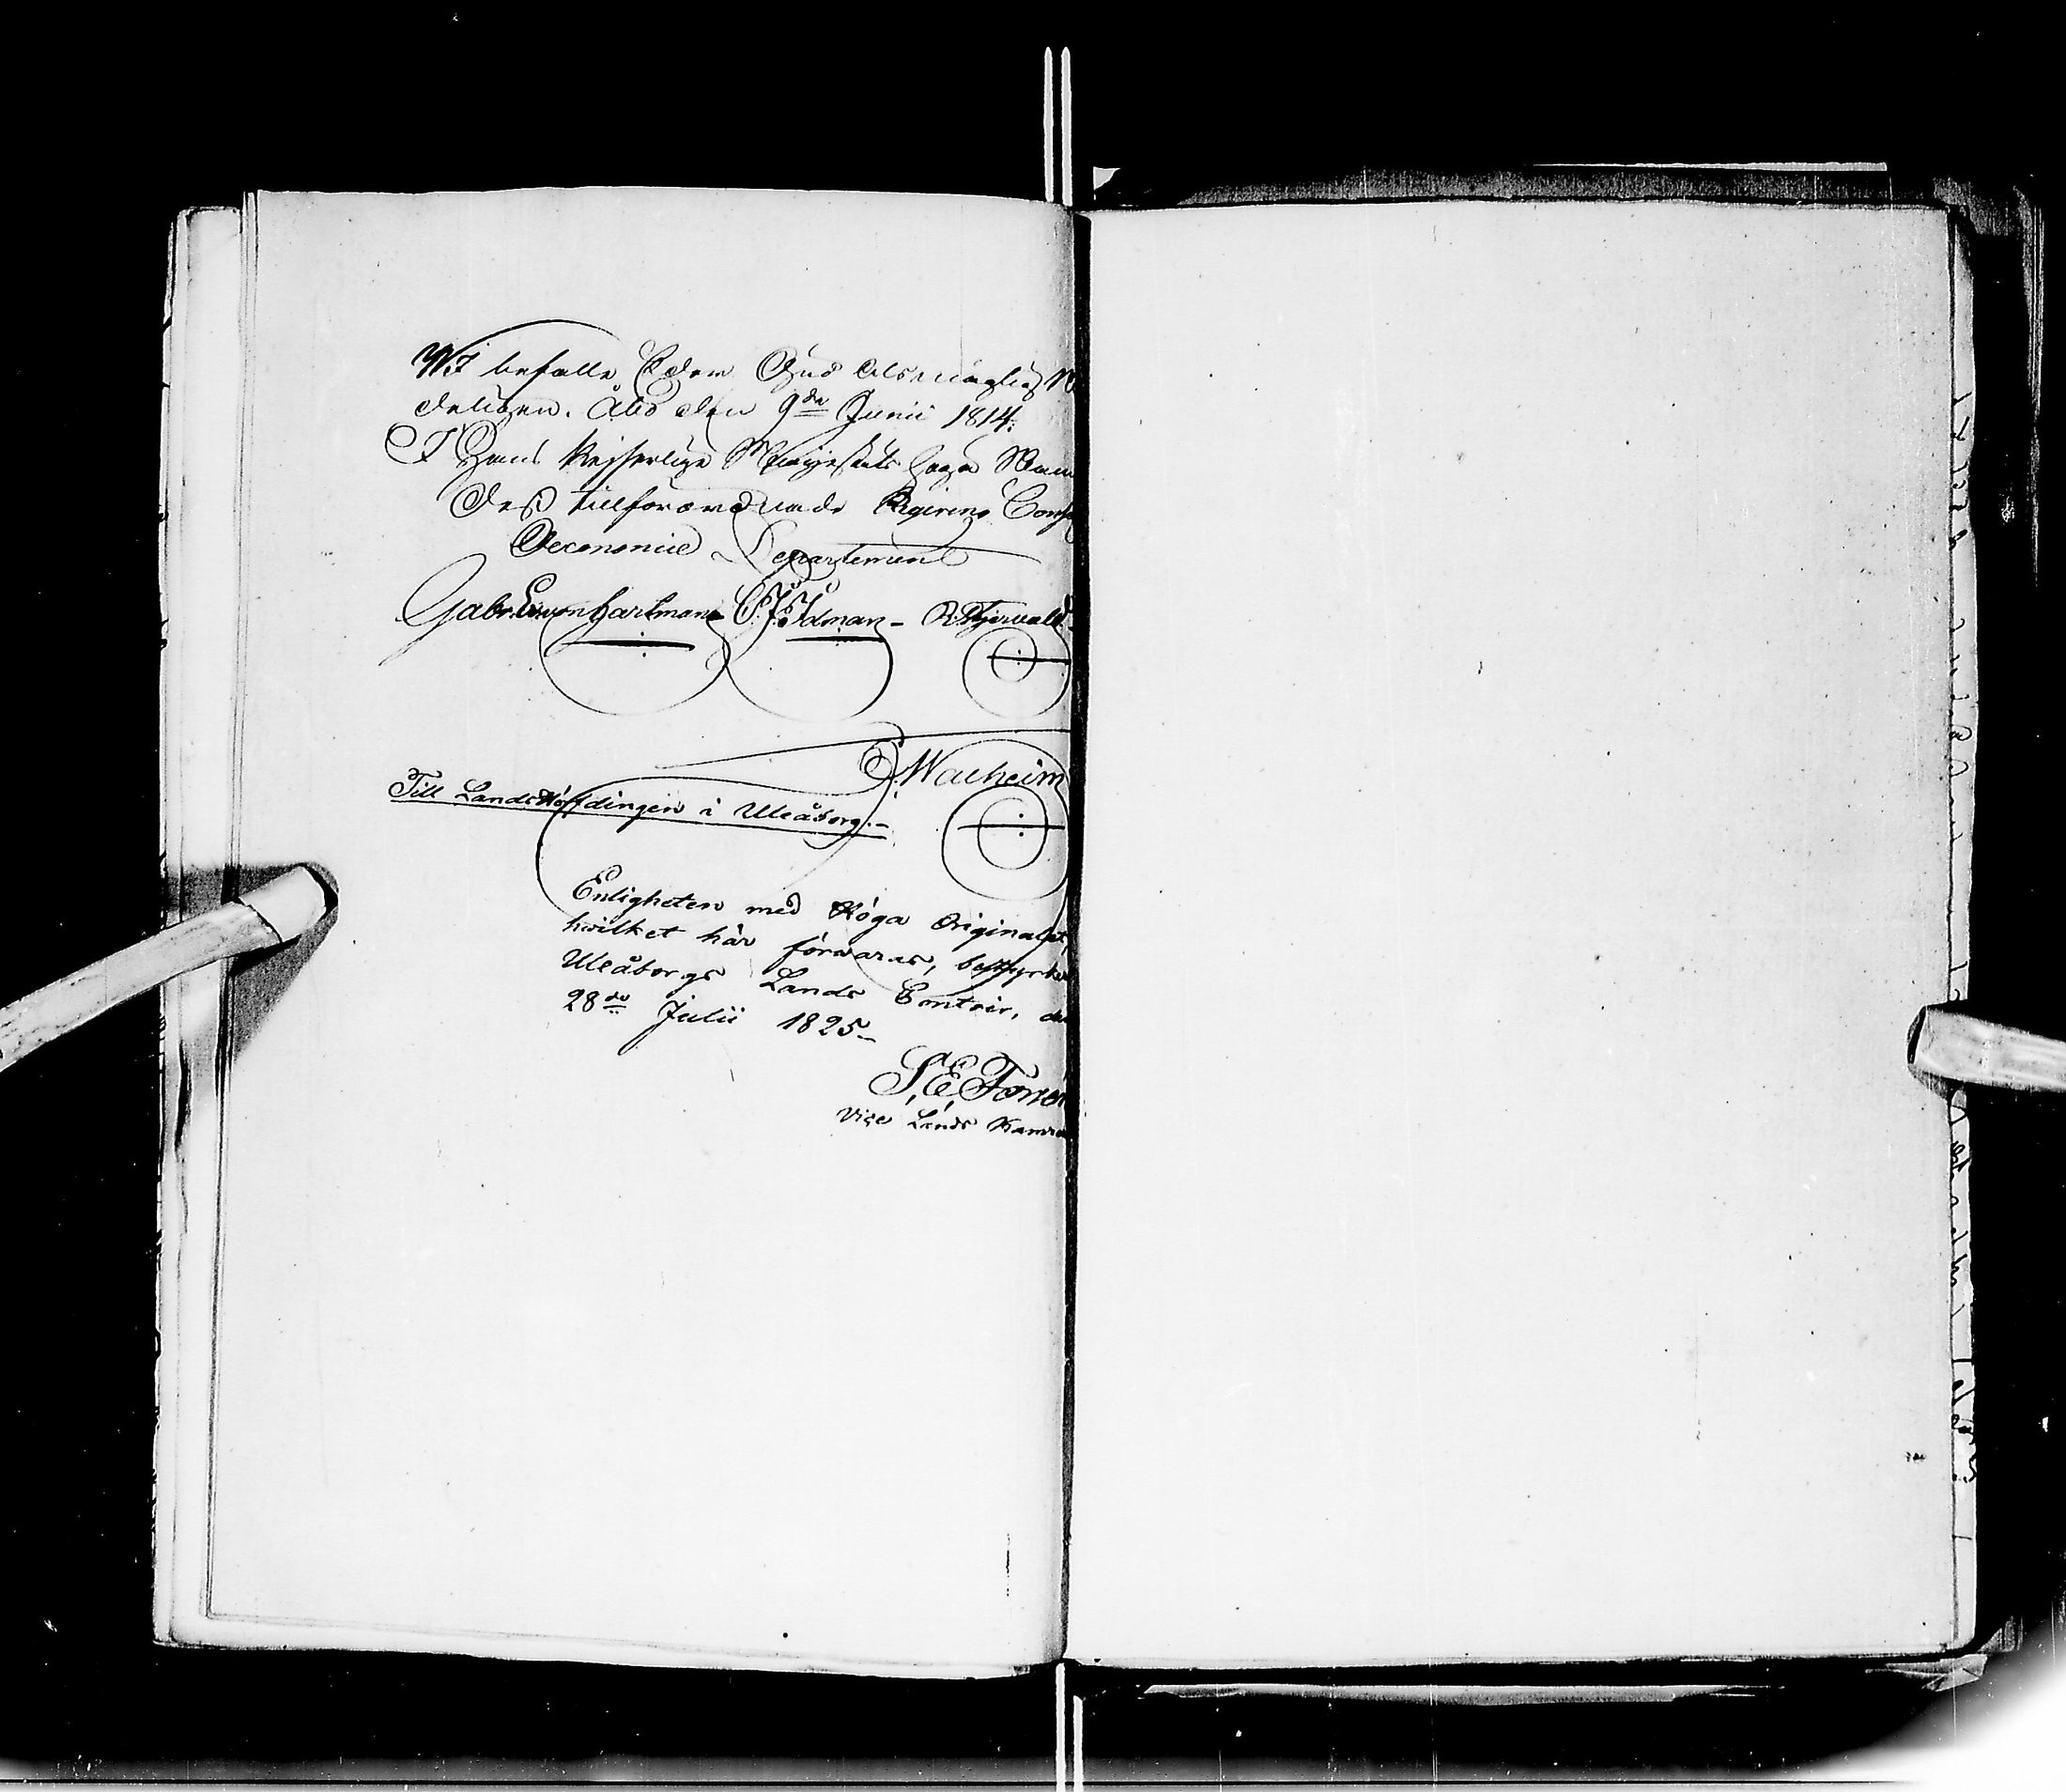 WI befalle Eder Gud Alsmägtig
deligen. Åbo den 9de Junii 1814.
I Hans Kejserlige Majestäts höga
Dess tillförordnade Regerings
Oeconomie Departement
Gabr. Er. von Hartman C. F. Rydman - R. Stjernvall
S. Walheim
Till Landshöfdingen i Uleåborg.-
Enligheten med Höga Originalet,
hvilket här förvaras, bestyrker
Uleåborgs Lands Contoir, den
28de Julii 1825-
S, E, 
Vice Lands